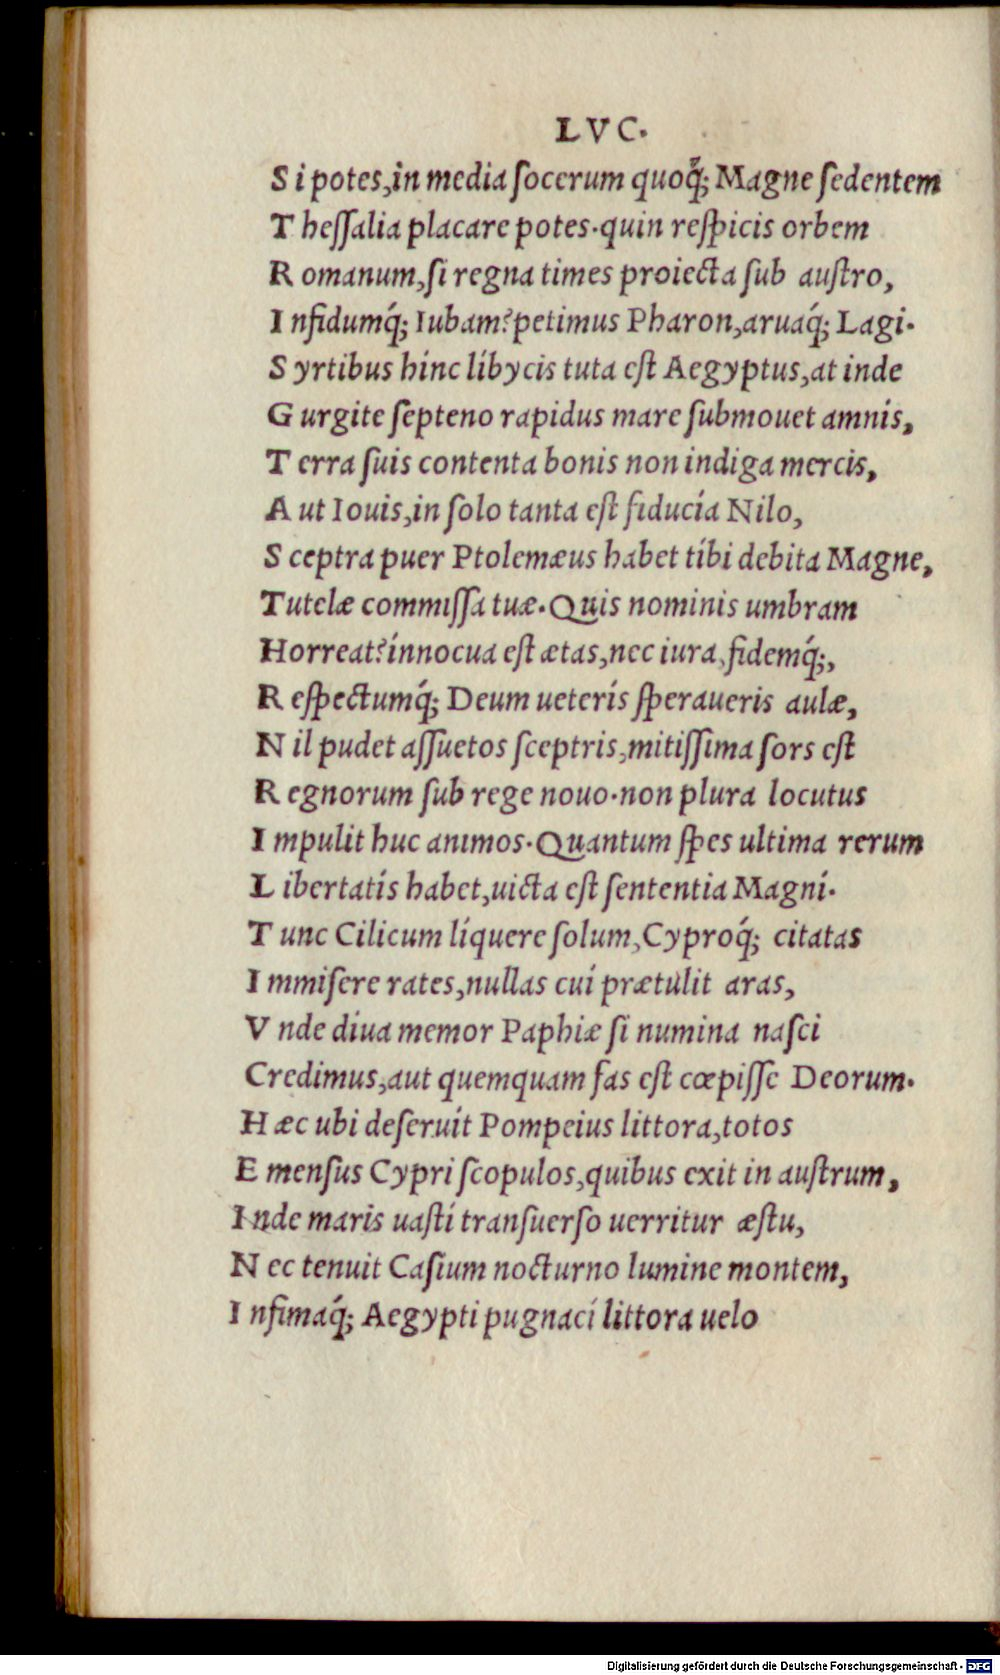 LVC.
S i potes, in media ſocerum quoq́; Magne ſedentem
T heſſalia placare potes. quin reſpicis orbem
R omanum, ſi regna times proiecta ſub auſtro,
I nfidumq́; Iubam? petimus Pharon, aruaq́; Lagi.
S yrtibus hinc libycis tuta eſt Aegyptus, at inde
G urgite ſepteno rapidus mare ſubmouet amnis,
T erra ſuis contenta bonis non indiga mercis,
A ut Iouis, in ſolo tanta eſt fiducia Nilo,
S ceptra puer Ptolemæus habet tibi debita Magne,
Tutelæ commiſſa tuæ. Quis nominis umbram
Horreat? innocua eſt ætas, nec iura, fidemq́;,
R eſpectumq́; Deum ueteris ſperaueris aulæ,
N il pudet aſſuetos ſceptris, mitiſſima ſors eſt
R egnorum ſub rege nouo. non plura locutus
I mpulit huc animos. Quantum ſpes ultima rerum
L ibertatis habet, uicta eſt ſententia Magni.
T unc Cilicum liquere ſolum, Cyproq́; citatas
I mmiſere rates, nullas cui prætulit aras,
V nde diua memor Paphiæ ſi numina naſci
Credimus, aut quemquam fas eſt cœpiſſe Deorum.
H æc ubi deſeruit Pompeius littora, totos
E menſus Cypri ſcopulos, quibus exit in auſtrum,
I nde maris uaſti tranſuerſo uerritur æſtu,
N ec tenuit Caſium nocturno lumine montem,
I nfimaq́; Aegypti pugnaci littora uelo
Digitalisierung gefördert durch die Deutsche Forschungsgemeinschaft - DFG